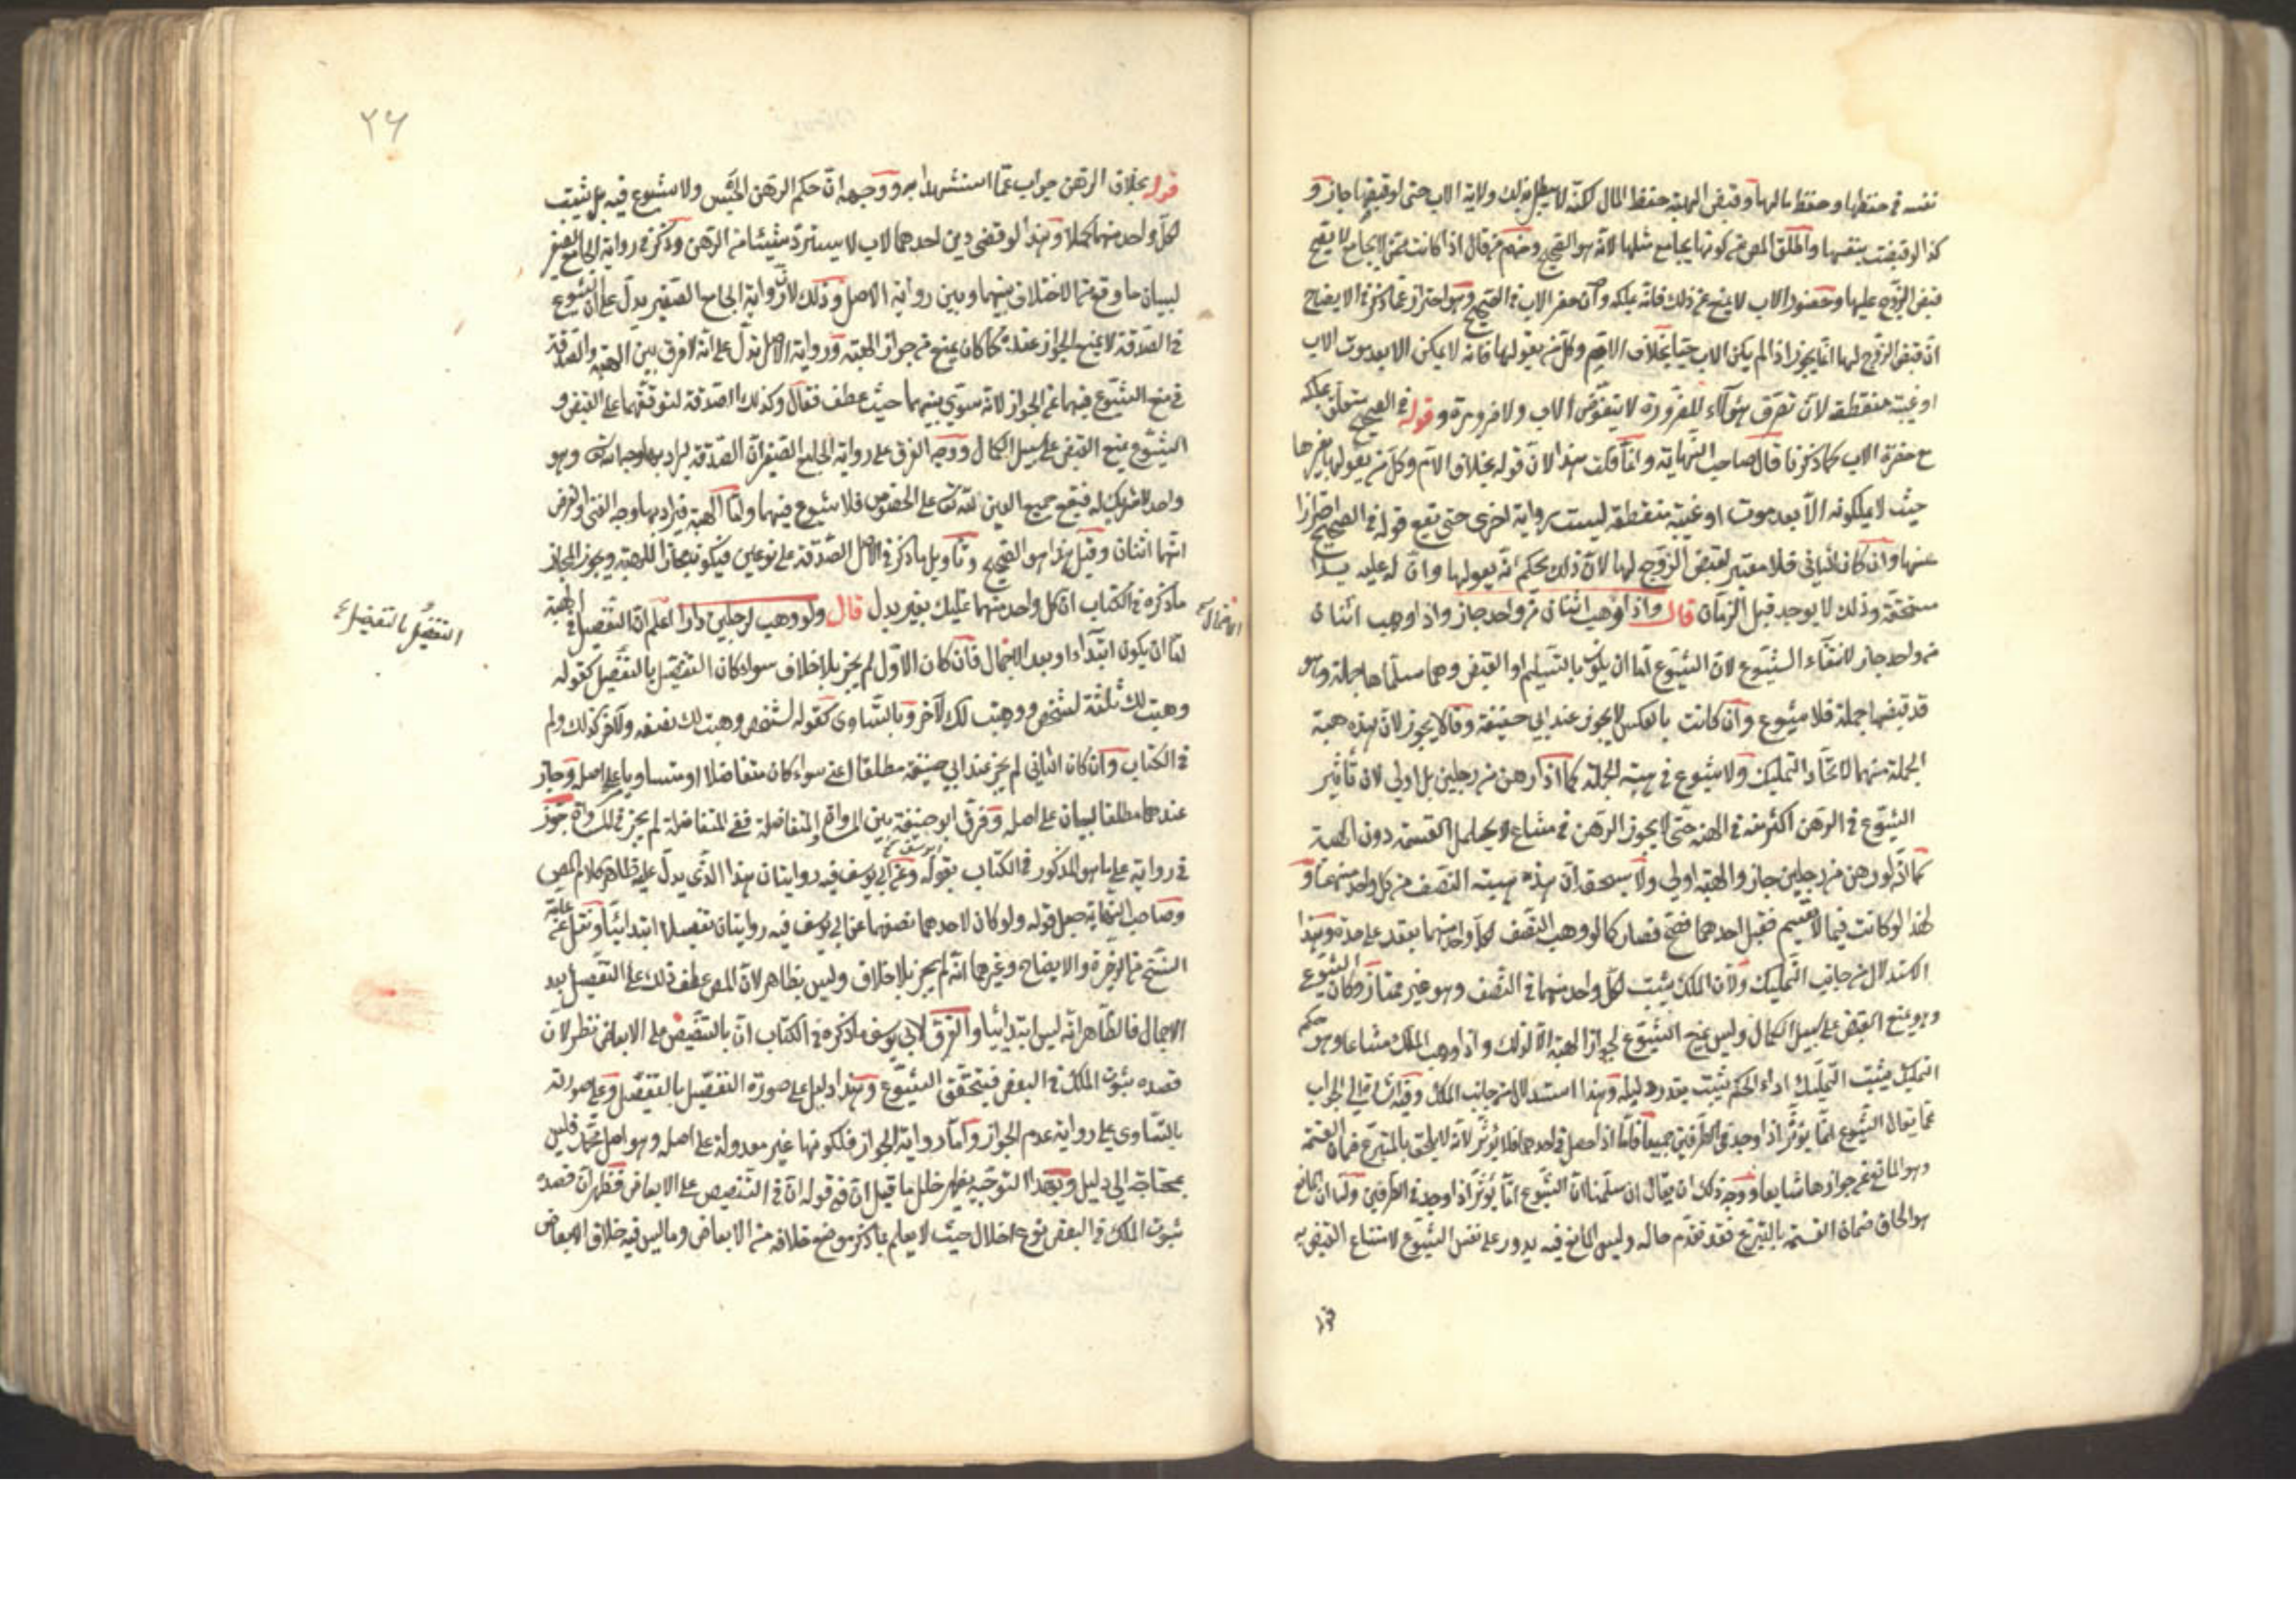 نفسه في حفظها وحفظ مالها وقبض الهبة حفظ المال لكنه لا يبطل بذلك ولاية الاب حتى لو قبضها جاز و
كذا لو قبضت بنفسها واطلق المص من كونها يجامع مثلها لانه هو الصحيح ومنهم من قال اذا كانت ممن لا يجامع لا يصح
قبض الزوج عليها وحضور الاب لا يمنع عن ذلك فانه يملكه وان حضر الاب في الصحيح وهو احتراز عما ذكر في الايضاح
ان قبض الزوج لها انما يجوز اذا لم يكن الاب حيا بخلاف الام وكل من يعولها فانه لا يمكن الا بعد موت الاب
او غيبته منقطعة لان تصرف هؤلاء للضرورة لا بتفويض الاب ولا ضرورة وقوله في الصحيح متعلق بملكه
مع حضرة الاب كما ذكرنا قال صاحب النهاية وانما قلت هذا لان قوله بخلاف الام وكل من يعولها غيرها
حيث لا يملكونه الا بعد موت او غيبة منقطعة ليست برواية اخرى حتى يقع قوله في الصحيح احترازا
عنها وان كان الثاني فلا معتبر لقبض الزوج لها لان ذلك بحكم انه يعولها وان له عليه يدا
مستحقة وذلك لا يوجد قبل الزفاف قال واذا وهب اثنان من واحد جاز واذا وهب اثنان
من واحد جاز لانتفاء الشيوع لان الشيوع اما ان يكون بالتسليم او القبض وهما سلماها جملة وهو
قد قبضها جملة فلا شيوع وان كانت بالعكس لا يجوز عند ابي حنيفة وقالا يجوز لان هذه هبة
الجملة منهما لاتحاد التمليك ولا شيوع في هبة الجملة كما اذا رهن من رجلين بل اولى لان تأثير
الشيوع في الرهن اكثر منه في الهبة حتى لا يجوز الرهن في مشاع لا يحتمل القسمة دون الهبة
كما انه لو رهن من رجلين جاز والهبة اولى وله ان هذه هبة النصف من كل واحد منهما و
لهذا لو كانت فيما لا يقسم فقبل احدهما صح فصار كما لو وهب النصف لكل واحد منهما بعقد على حدة وهذا
الاستدلال من جانب التمليك ولان الملك يثبت لكل واحد منهما في النصف وهو غير ممتاز وكان الشيوع
وهو يمنع القبض على سبيل الكمال وليس منع الشيوع لجواز الهبة الا لذلك واذا وهب الملك مشاعا وهو حكم
التمليك يثبت التمليك اذ الحكم يثبت بقدر دليله وهذا استدلال من جانب الملك وفيه اشارة الى الجواب
عما يقال الشيوع انما يؤثر اذا وجد في الطرفين جميعا فاما اذا حصل في احدهما فلا يؤثر لانه لا يلحق بالمتبرع ضمان القسمة
وهو المانع عن جوازها شايعا ووجه ذلك ان يقال ان سلمنا ان الشيوع انما يؤثر اذا وجد في الطرفين ولما ان المانع
هو الحاق ضمان القسمة بالتبرع فقد تقدم حاله وليس المانع فيه يدور على نفس الشيوع لامتناع القبض به
قوله
٢٦
قوله بخلاف الرهن جواب عما استشهدا به ووجهه ان حكم الرهن الحبس ولا شيوع فيه بل يثبت
لكل واحد منهما كملا ولهذا لو قضى دين احدهما لا يسترد شيئا من الرهن وذكر في رواية الجامع الصغير
لبيان ما وقع من الاختلاف بينها وبين رواية الاصل وذلك لان رواية الجامع الصغير يدل على ان الشيوع
في الصدقة لا يمنع الجواز عنده كما كان يمنع من جواز الهبة ورواية الاصل تدل على انه لا فرق بين الهبة والصدقة
في منع الشيوع فيهما عن الجواز لانه سوى بينهما حيث عطف فقال وكذلك الصدقة لتوقفهما على القبض و
الشيوع يمنع القبض على سبيل الكمال ووجه الفرق على رواية الجامع الصغير ان الصدقة يراد بها وجه الله تع وهو
واحد لا شريك له فيقع جميع العين لله تع على الخصوص فلا شيوع فيهما واما الهبة فيراد بها وجه الغني والفرض
انهما اثنان وقيل هذا هو الصحيح وتأويل ما ذكر في الاصل الصدقة على غنيين فيكون مجازا للهبة ويجوز المجاز
ما ذكره في الكتاب ان كل واحد منهما تمليك بغير بدل قال ولو وهب لرجلين دارا اعلم ان التفصيل في الهبة
اما ان يكون ابتداء او بعد الاجمال فان كان الاول لم يجز بلا خلاف سواء كان التفصيل بالتفضيل كقوله
وهبت لك ثلثه لشخص ووهبت لك لآخر وبالتساوي كقوله لشخص وهبت لك نصفه ولآخر كذلك ولم
في الكتاب وان كان الثاني لم يجز عند ابي حنيفة مطلقا اعني سواء كان متفاضلا او متساويا على اصله وجاز
عند محمد مطلقا لبيان على اصله وفرق ابو حنيفة بين المساواة والمتفاضلة ففي المتفاضلة لم يجز في المساواة جوز
ابو يوسف
في رواية على ما هو المذكور في الكتاب بقوله وعن ابي يوسف فيه روايتان هذا الذي يدل عليه ظاهر كلام المص
وصاحب النهاية جعل قوله ولو كان لاحدهما نصفها عن ابي يوسف فيه روايتان تفصيلا ابتدائيا ونقل عن عامة
النسخ من الذخيرة والايضاح وغيرهما انه لم يجز بلا خلاف وليس بظاهر لان المص عطف ذلك على التفصيل بعد
الاجمال فالظاهر انه ليس ابتدائيا والفرق لابي يوسف ما ذكره في الكتاب ان بالتنصيص على الابعاض نظر لان
قصده ثبوت الملك في البعض فيتحقق الشيوع وهذا دليل على صورة التفصيل بالتفضيل وعلى صورته
بالتساوي على رواية عدم الجواز واما رواية الجواز فلكونها غير معدولة على اصله وهو اصل محمد فليس
بمحتاجة الى دليل وبهذا التوجيه يظهر خلل ما قيل ان في قوله ان في التنصيص على الابعاض فظهر ان قصده
ثبوت الملك في البعض نوع اخلال حيث لا يعلم بما ذكر موضع خلافه من الابعاض وما ليس فيه خلاف الابعاض
الاجمال صح
التفضيل بالتفضيل